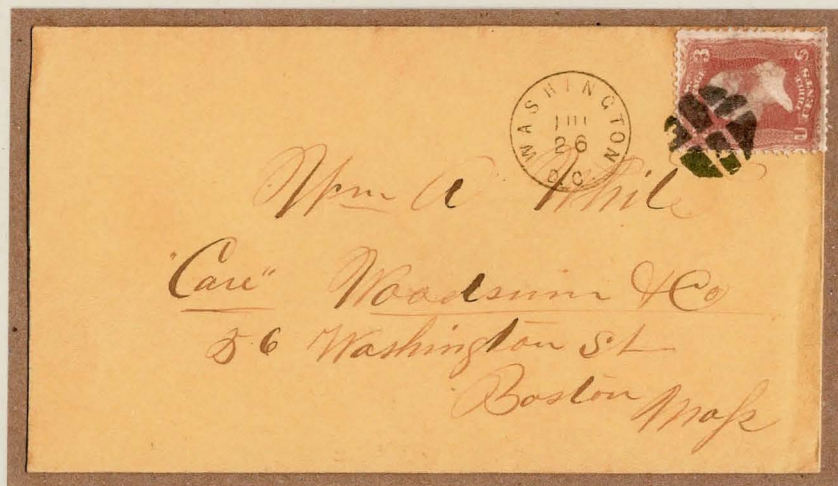 WASHINGTON
JUL
26
D.C.
3 CENTS
Wm A White
"Care" Woodsum & Co
56 Washington St
Boston Mass